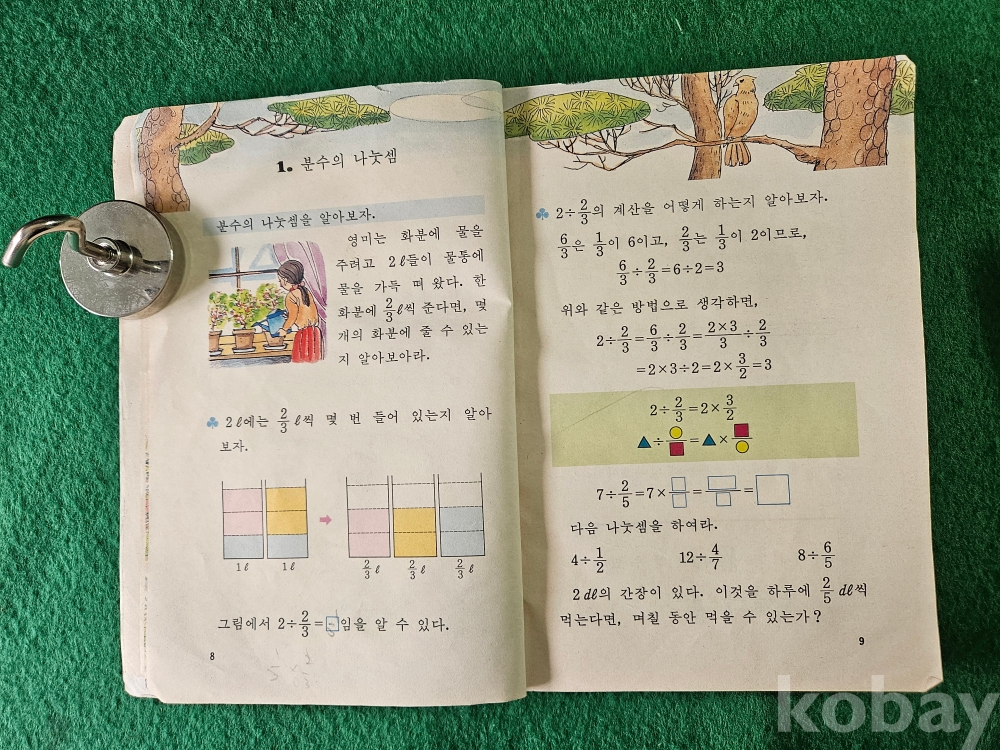 1. 분수의 나눗셈
분수의 나눗셈을 알아보자.
영미는 화분에 물을
주려고 2ℓ들이 물통에
물을 가득 떠 왔다. 한
화분에 2/3ℓ씩 준다면, 몇
개의 화분에 줄 수 있는
지 알아보아라.
2ℓ에는 2/3ℓ씩 몇 번 들어 있는지 알아
보자.
1ℓ 1ℓ 2/3ℓ 2/3ℓ 2/3ℓ
그림에서 2÷2/3=□임을 알 수 있다.
8
2÷2/3의 계산을 어떻게 하는지 알아보자.
6/3은 1/3이 6이고, 2/3는 1/3이 2이므로,
6/3÷2/3=6÷2=3
위와 같은 방법으로 생각하면,
2÷2/3=6/3÷2/3=2×3/3÷2/3
=2×3÷2=2×3/2=3
2÷2/3=2×3/2
▲÷●/■=▲×■/●
7÷2/5=7×□/□=□/□=□
다음 나눗셈을 하여라.
4÷1/2 12÷4/7 8÷6/5
2dℓ의 간장이 있다. 이것을 하루에 2/5dℓ씩
먹는다면, 며칠 동안 먹을 수 있는가?
9
kobay